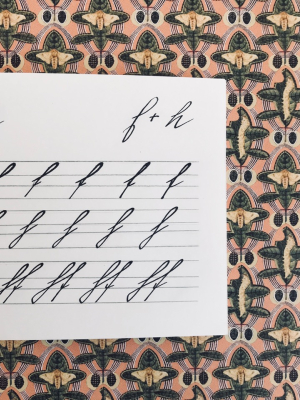 f + h
f f f f f
f f f f f
ff ff ff ff